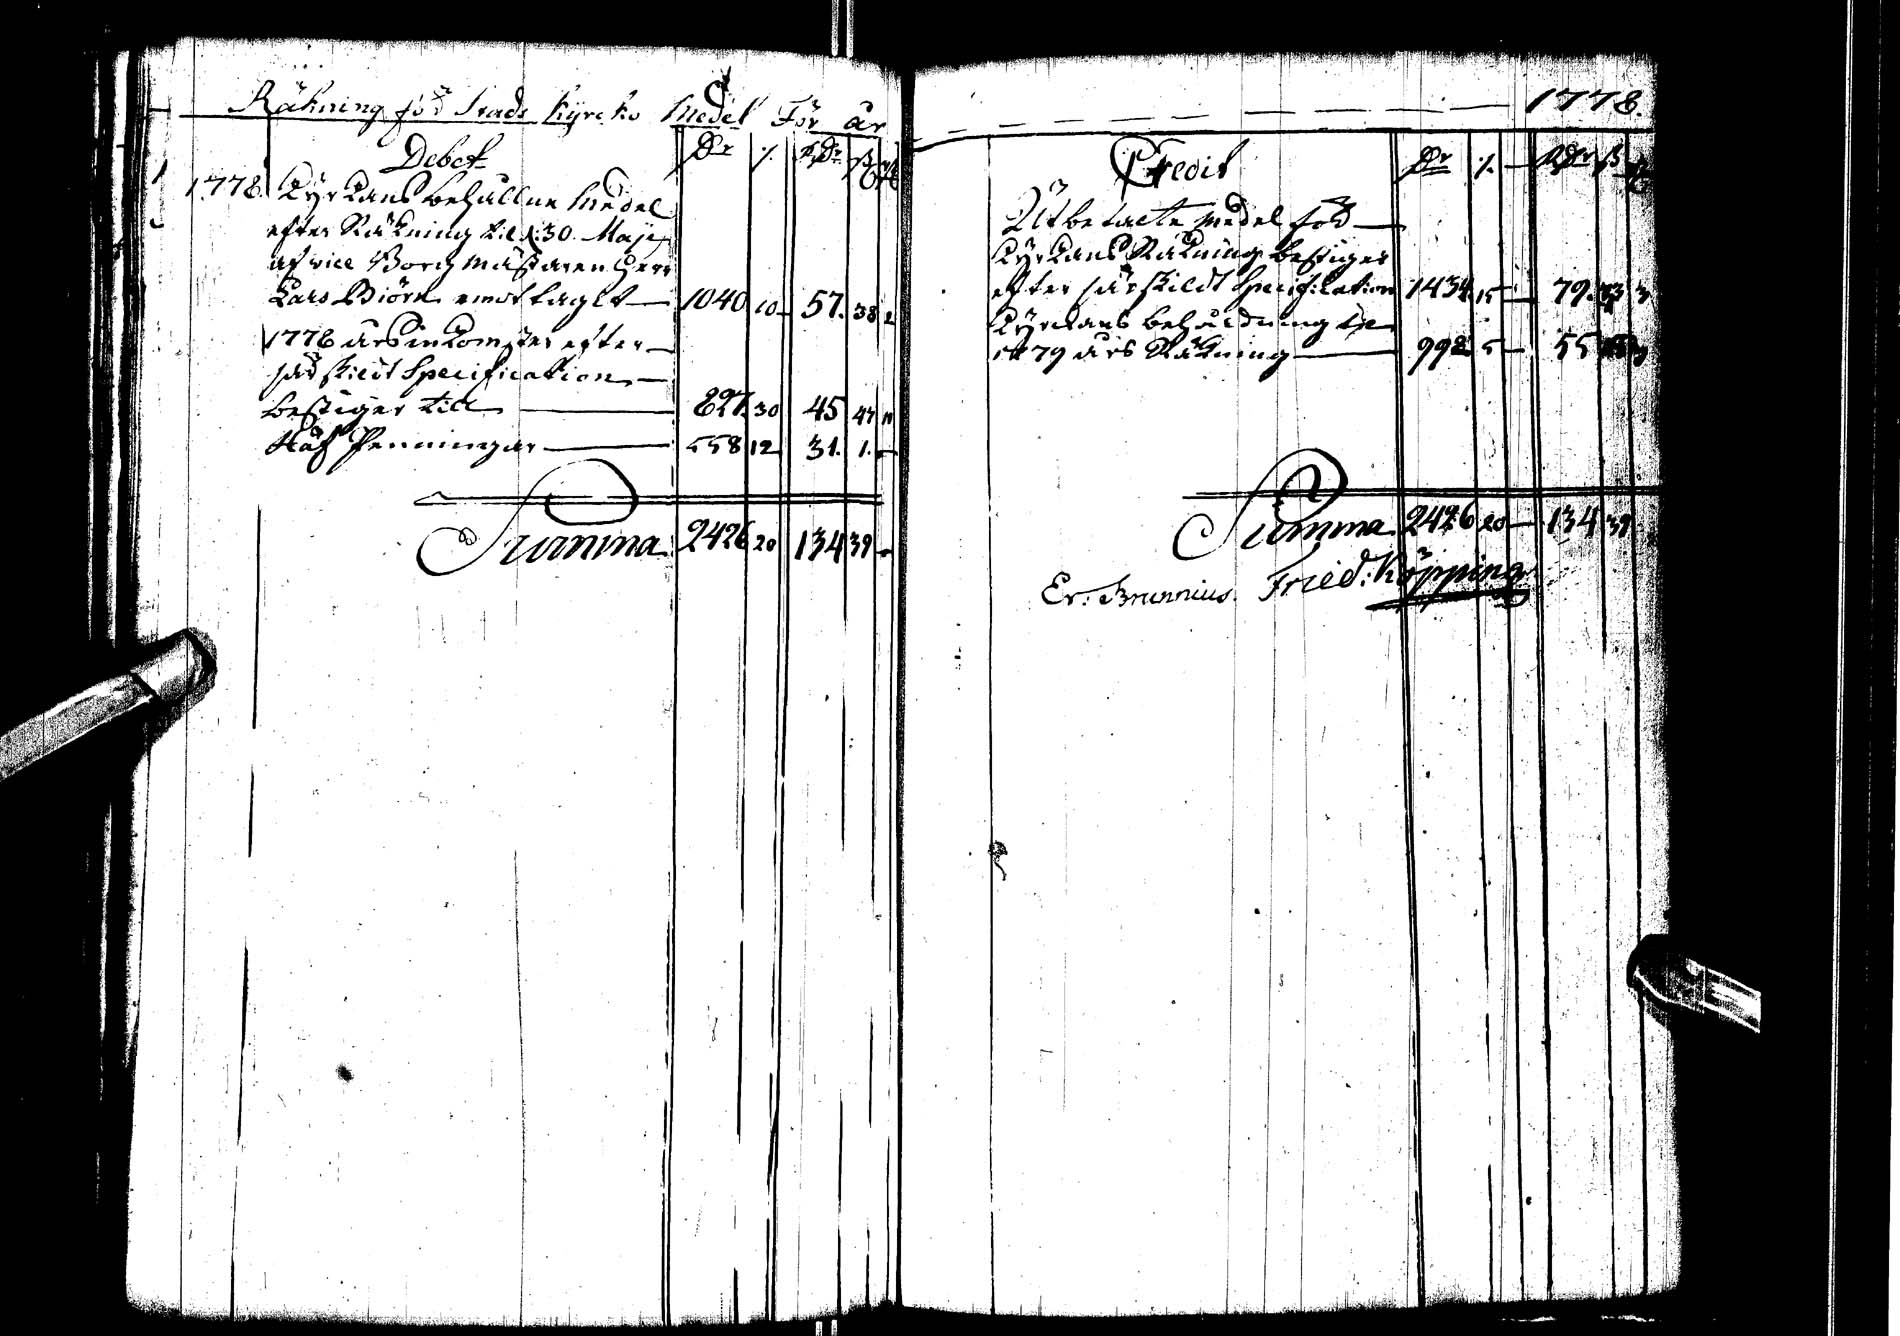 Räkning för Stads Kyrcko Medel För år
Debet Dr ⁒ RDr ß
1778. Kyrkans behållne Medel
efter Räkning til d: 30. Maji
af vice Borgmästaren Herr
Lars Biörn emottaget 1040 10 57. 38 2
1778 års inkomster efter
särskildt Specification
bestiger till 827. 30 45 47 11
Håf Penningar 558 12 31. 1.
Summa 2426 20 134 39
1778.
Credit Dr ⁒ RDr ß
Utbetalte Medel för
Kyrkans Räkning bestiger
efter särskildt Specification 1434 15 79. 3
Kyrckans behåldning til
1779 års Räkning 992 5 55
Summa 2426 20 134 39
Er: Brunnius. Fried: Köpping